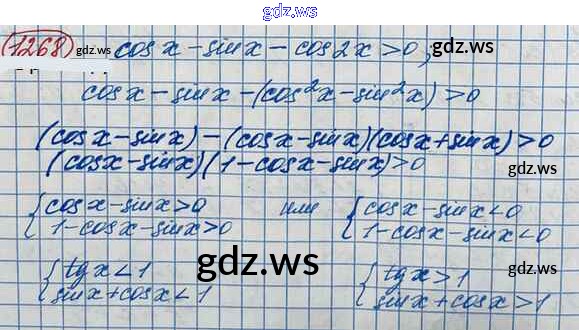 gdz.ws
1268 gdz.ws cosx-sinx-cos2x>0,
cosx-sinx-(cos²x-sin²x)>0
(cosx-sinx)-(cosx-sinx)(cosx+sinx)>0
(cosx-sinx)(1-cosx-sinx)>0 gdz.ws
{cosx-sinx>0 или {cosx-sinx<0
{1-cosx-sinx>0 {1-cosx-sinx<0
{tgx<1 gdz.ws {tgx>1 gdz.ws
{sinx+cosx<1 {sinx+cosx>1